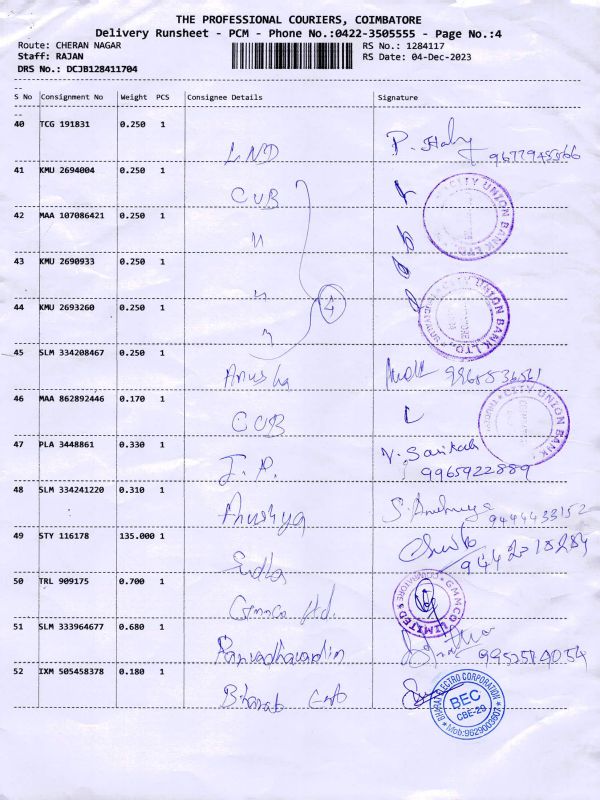 THE PROFESSIONAL COURIERS, COIMBATORE
Delivery Runsheet - PCM - Phone No.:0422-3505555 - Page No.:4
Route: CHERAN NAGAR RS No.: 1284117
Staff: RAJAN RS Date: 04-Dec-2023
DRS No.: DCJB128411704
S No Consignment No Weight PCS Consignee Details Signature
40 TCG 191831 0.250 1
LND P.
41 KMU 2694004 0.250 1
CUB CITY UNION BANK LTD.
42 MAA 107086421 0.250 1
"
43 KMU 2690933 0.250 1
" 4
44 KMU 2693260 0.250 1
" CITY UNION BANK LTD.
45 SLM 334208467 0.250 1
Anusha
46 MAA 862892446 0.170 1
CUB CITY UNION BANK
47 PLA 3448861 0.330 1
J.P. V. Sarikah
9965922889
48 SLM 334241220 0.310 1
Anushya S. 9444433152
49 STY 116178 135.000 1
Sudha
50 TRL 909175 0.700 1
Gmmco ltd. GMMCO LIMITED COIMBATORE
51 SLM 333964677 0.680 1
52 IXM 505458378 0.180 1
BHARAT ELECTRO CORPORATION
BEC
CBE-29
Mob:9629003607